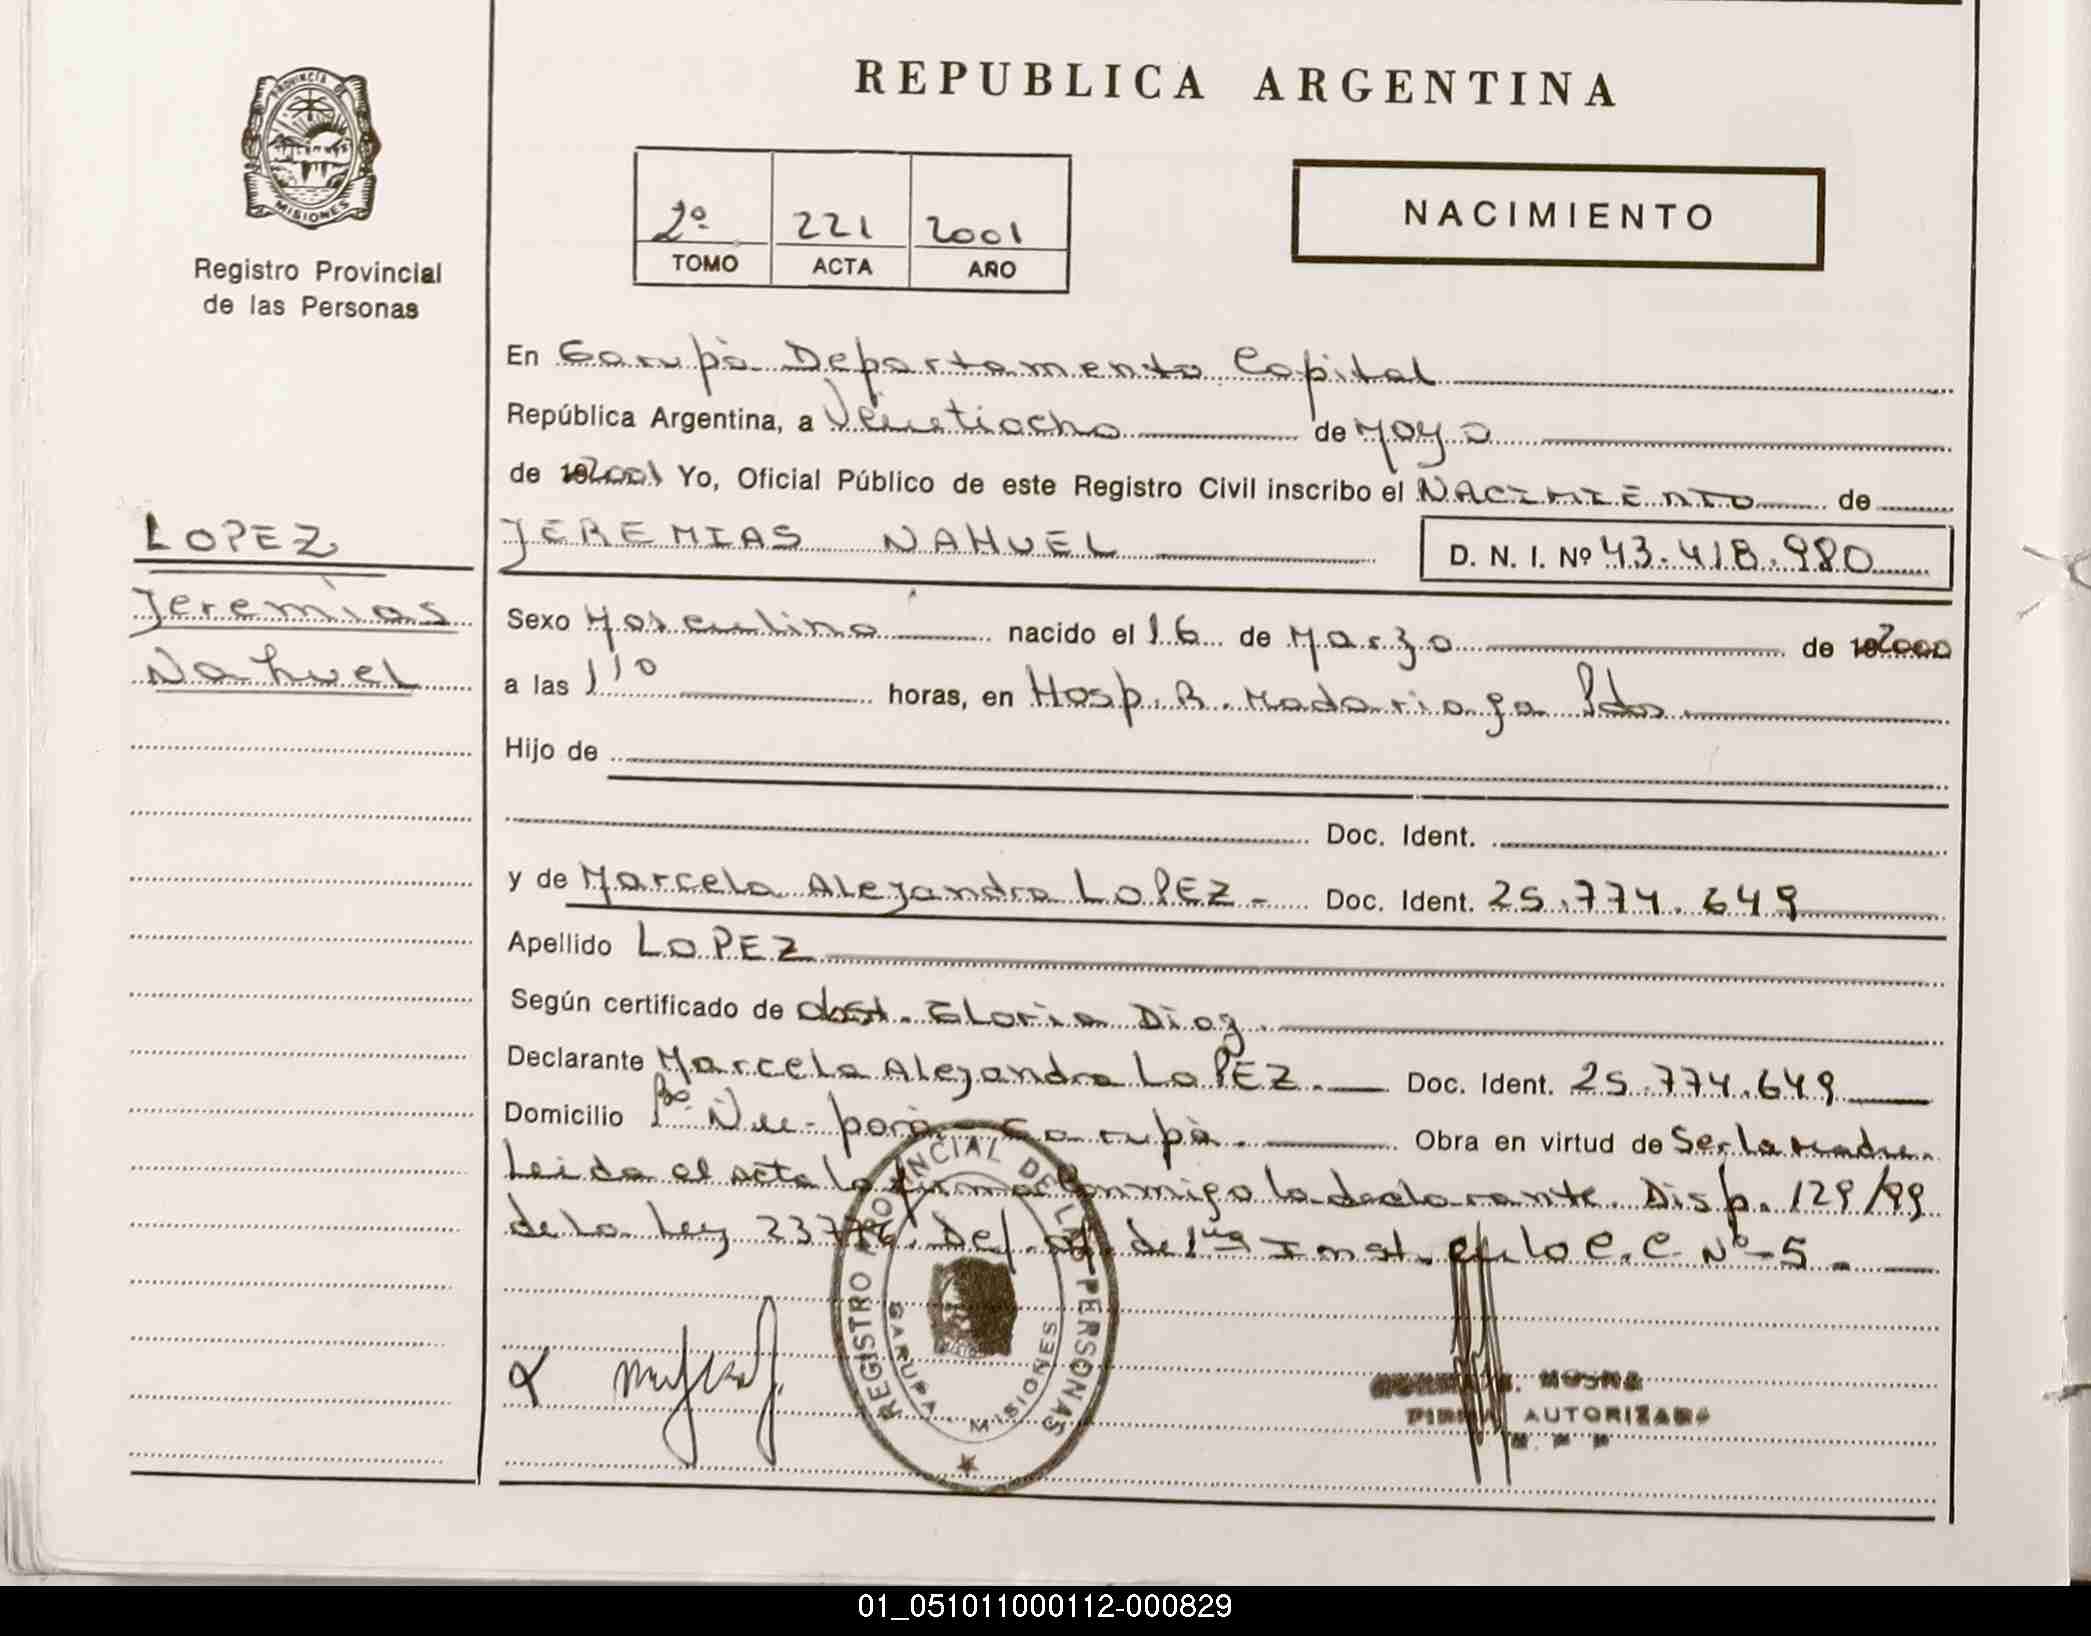 PROVINCIA DE
MISIONES
Registro Provincial
de las Personas
LOPEZ
Jeremías
Nahuel
REPUBLICA ARGENTINA
2º 221 2001
TOMO ACTA AÑO
NACIMIENTO
En Garupà Departamento Capital
República Argentina, a Veintiocho de Mayo
de 192001 Yo, Oficial Público de este Registro Civil inscribo el NACIMIENTO de
JEREMIAS NAHUEL D. N. I. Nº 43.418.980
Sexo Masculino nacido el 16 de Marzo de 192000
a las 1 10 horas, en Hosp. R. Madariaga Pdas
Hijo de
Doc. Ident.
y de Marcela Alejandra LOPEZ - Doc. Ident. 25.774.649
Apellido LOPEZ
Según certificado de obst. Gloria Diaz.
Declarante Marcela Alejandra LOPEZ. Doc. Ident. 25.774.649
Domicilio Bº Ñu-porà - Garupà. Obra en virtud de Ser la Madre.
Leida el acta la firma conmigo la declarante. Disp. 129/99
de la Ley 23776. Def. of. de 1ra Inst. en lo C.C. Nº-5.
REGISTRO PROVINCIAL DE LAS PERSONAS
GARUPA - MISIONES
AUTORIZADA
01_051011000112-000829